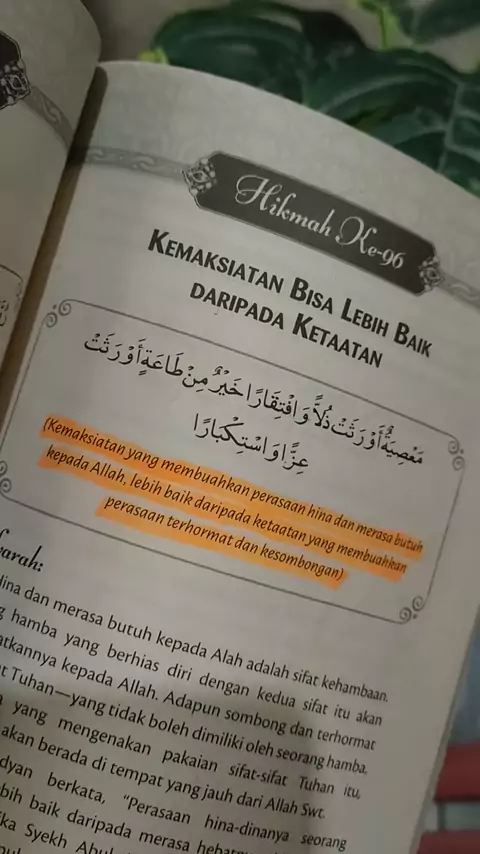 Hikmah Ke-96
KEMAKSIATAN BISA LEBIH BAIK
DARIPADA KETAATAN
مَعْصِيَةٌ أَوْرَثَتْ ذُلاًّ وَافْتِقَارًا خَيْرٌ مِنْ طَاعَةٍ أَوْرَثَتْ
عِزًّا وَاسْتِكْبَارًا
(Kemaksiatan yang membuahkan perasaan hina dan merasa butuh
kepada Allah, lebih baik daripada ketaatan yang membuahkan
perasaan terhormat dan kesombongan)
arah:
ina dan merasa butuh kepada Alah adalah sifat kehambaan.
hamba yang berhias diri dengan kedua sifat itu akan
atkannya kepada Allah. Adapun sombong dan terhormat
t Tuhan—yang tidak boleh dimiliki oleh seorang hamba.
yang mengenakan pakaian sifat-sifat Tuhan itu,
akan berada di tempat yang jauh dari Allah Swt.
dyan berkata, "Perasaan hina-dinanya seorang
bih baik daripada merasa
ka Syekh